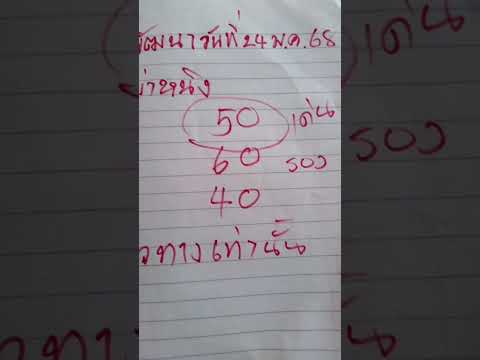 พัฒนาวันที่24พ.ค.68
ย่าหนิง
50 เด่น
60 รอง
40
ทางเท่านั้น